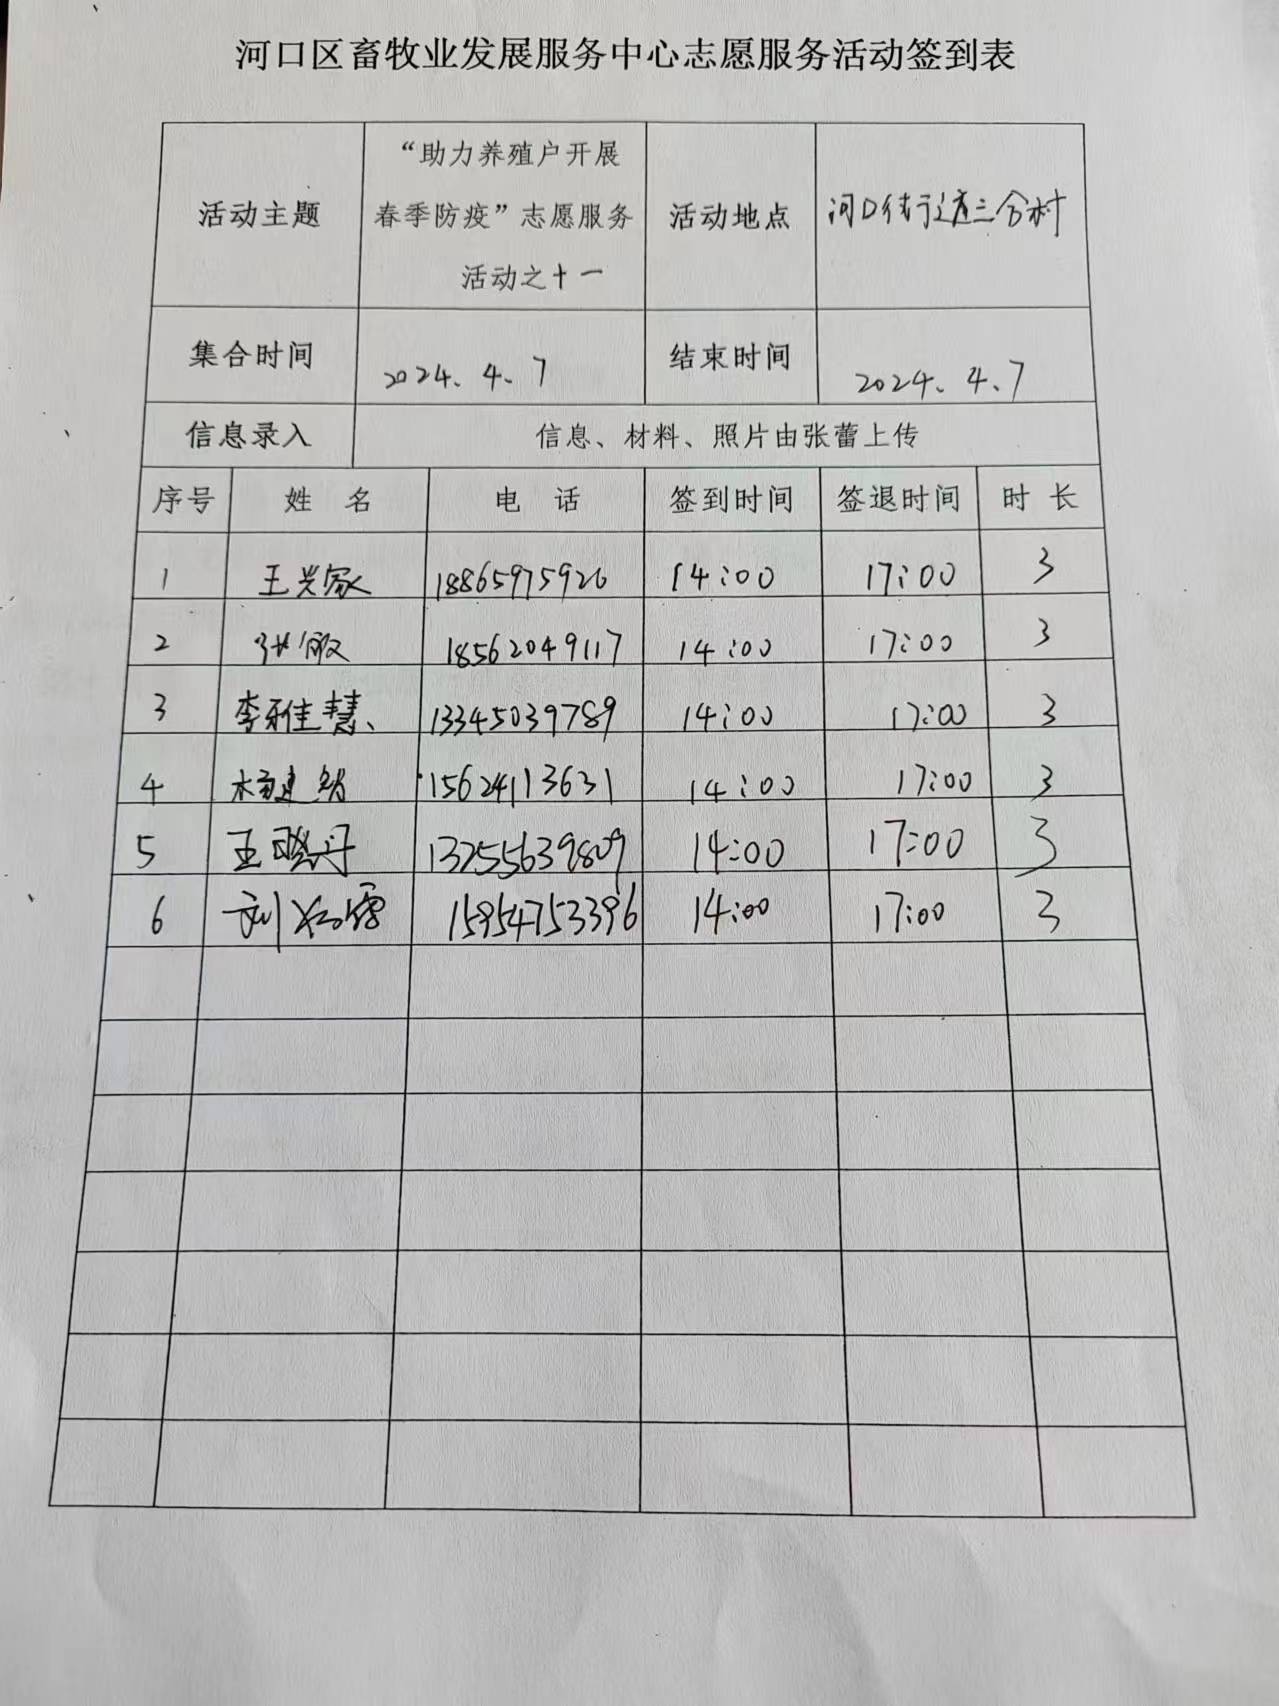 河口区畜牧业发展服务中心志愿服务活动签到表
活动主题 “助力养殖户开展 春季防疫”志愿服务 活动之十一 活动地点 河口街道三合村
集合时间 2024.4.7 结束时间 2024.4.7
信息录入 信息、材料、照片由张蕾上传
序号 姓 名 电 话 签到时间 签退时间 时 长
1 王兴家 18865975926 14:00 17:00 3
2 张 18562049117 14:00 17:00 3
3 李雅慧 13345039789 14:00 17:00 3
4 杨建 15624113631 14:00 17:00 3
5 王晓丹 13255639809 14:00 17:00 3
6 刘 15954753396 14:00 17:00 3